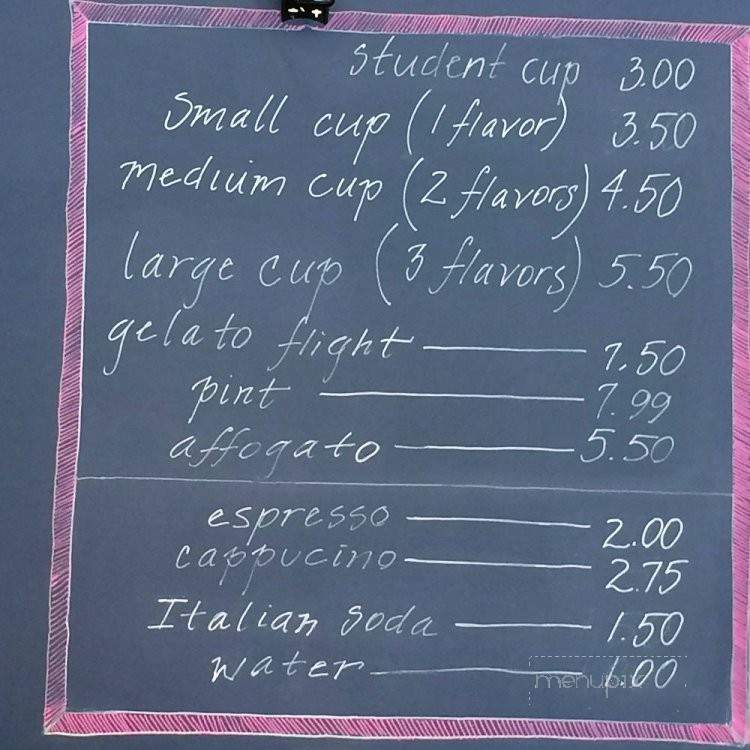 student cup 3.00
small cup (1 flavor) 3.50
medium cup (2 flavors) 4.50
large cup (3 flavors) 5.50
gelato flight 7.50
pint 7.99
affogato 5.50
espresso 2.00
cappucino 2.75
Italian soda 1.50
water 1.00
menupix